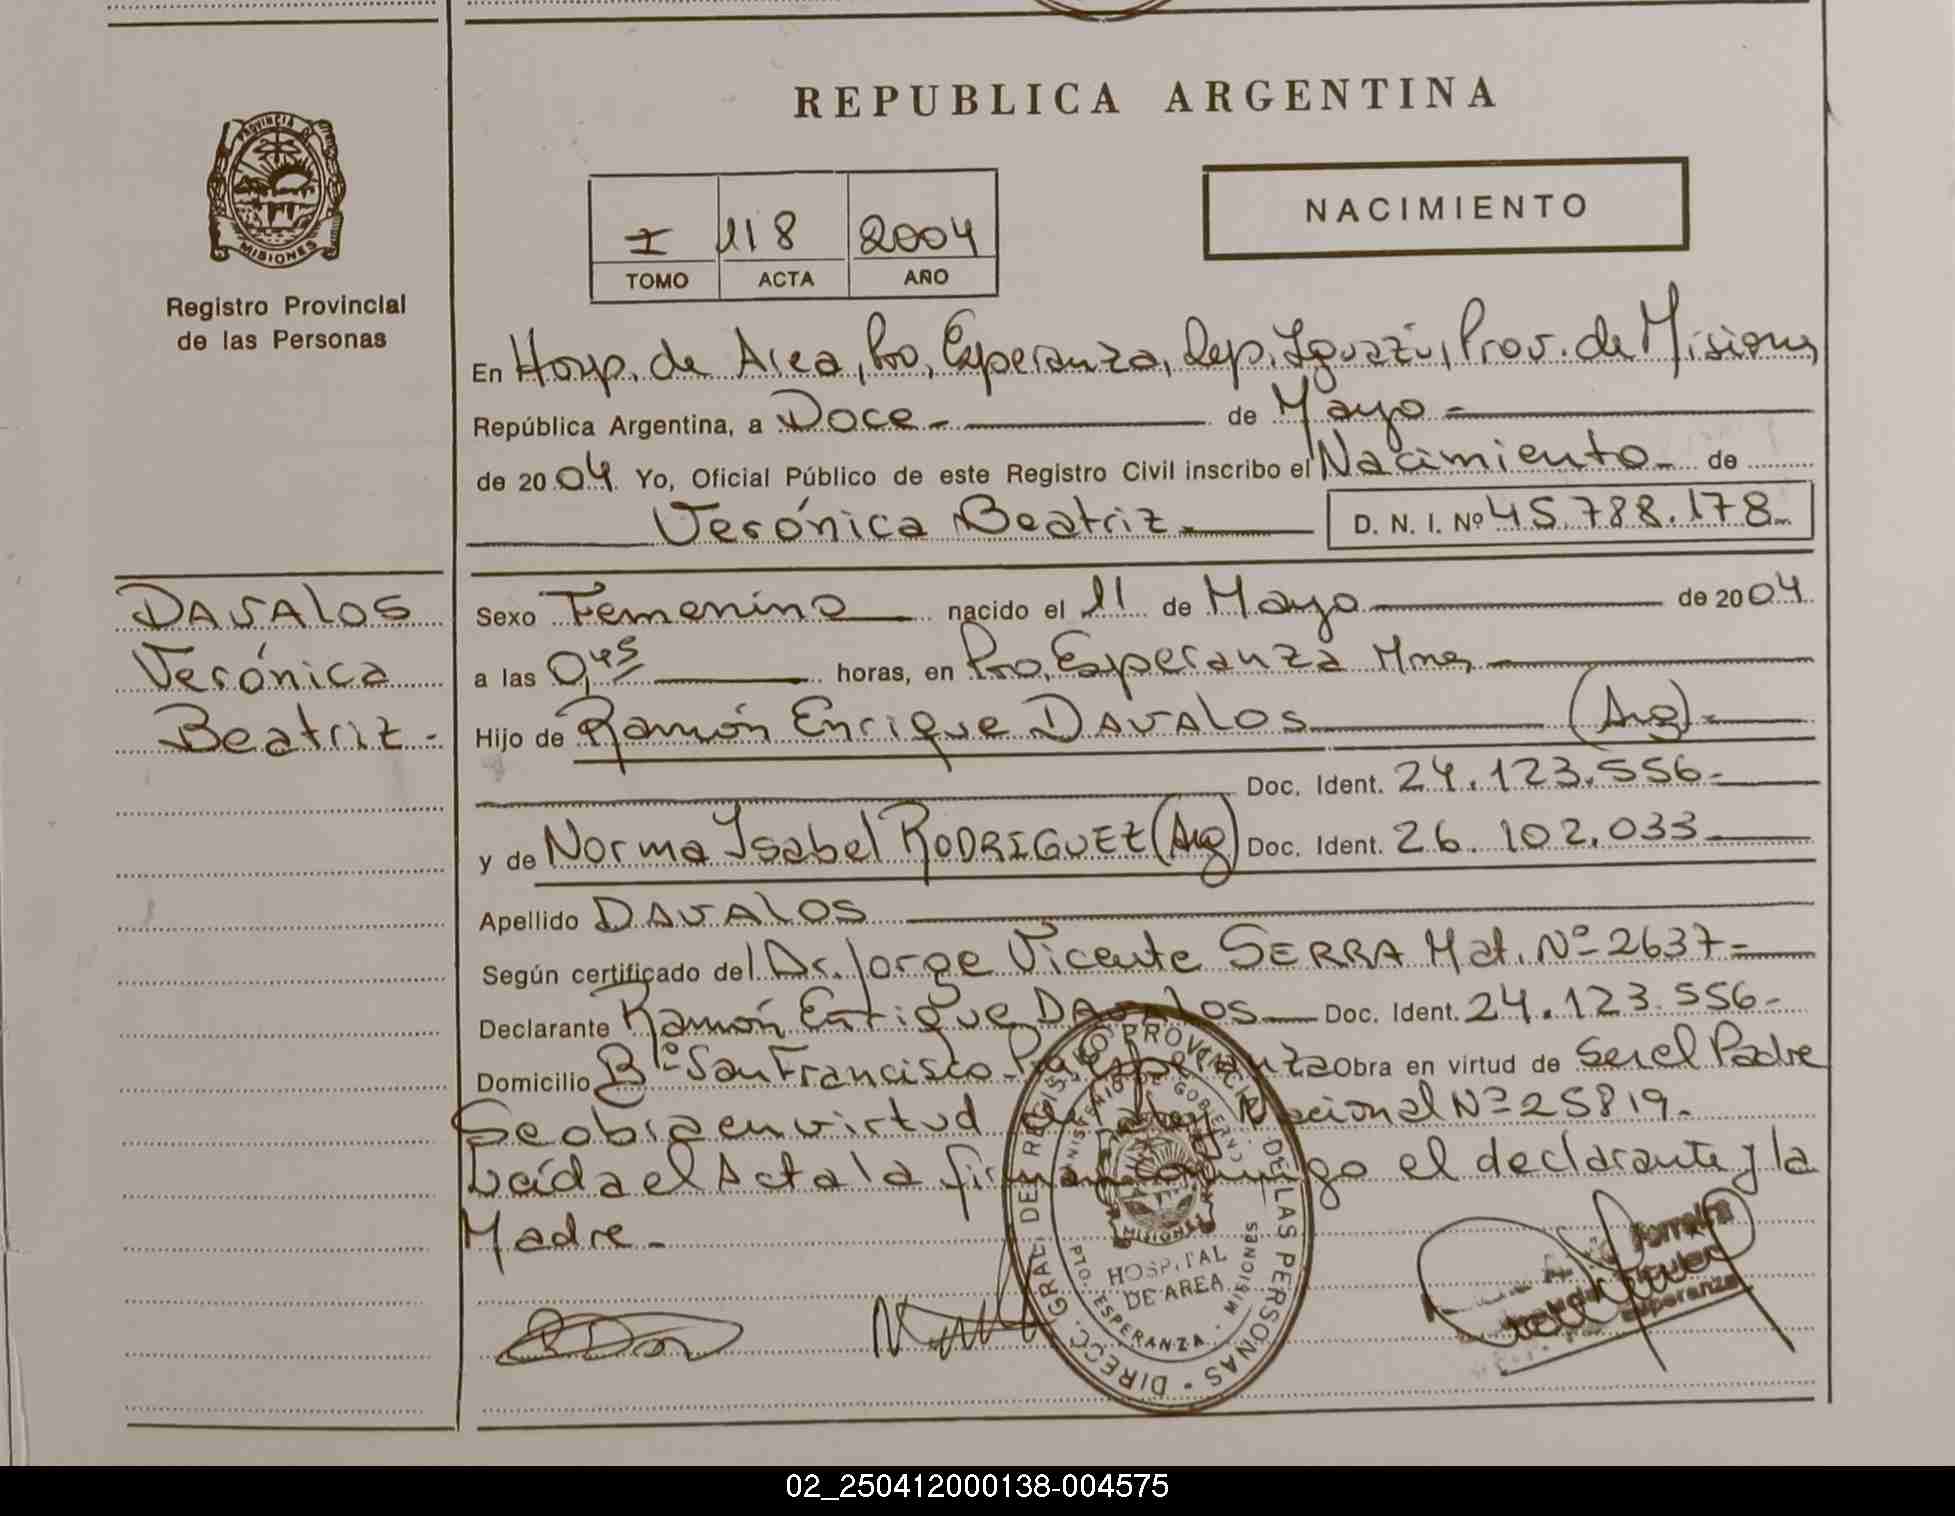 REPUBLICA ARGENTINA
PROVINCIA DE
MISIONES
Registro Provincial
de las Personas
I 118 2004
TOMO ACTA AÑO
NACIMIENTO
En Hosp. de Area, Pto, Esperanza, Dep. Iguazú, Prov. de Misiones
República Argentina, a Doce- de Mayo-
de 2004 Yo, Oficial Público de este Registro Civil inscribo el Nacimiento- de
Verónica Beatriz- D. N. I. Nº 45.788.178-
DAVALOS
Verónica
Beatriz-
Sexo Femenino nacido el 11 de Mayo de 2004
a las 0,45 horas, en Pto, Esperanza Mnes
Hijo de Ramón Enrique DAVALOS (Arg)-
Doc. Ident. 24.123.556-
y de Norma Isabel RODRIGUEZ (Arg) Doc. Ident. 26.102.033
Apellido DAVALOS
Según certificado del Dr. Jorge Vicente SERRA Mat. Nº 2637=
Declarante Ramón Enrique DAVALOS Doc. Ident. 24.123.556-
Domicilio Bº San Francisco-Pto Esperanza Obra en virtud de Ser el Padre
Se obra en virtud de la Ley Nacional Nº 25819.
Leída el Acta la firman conmigo el declarante y la
Madre-
DIRECC. GRAL. DEL REGISTRO PROVINCIAL DE LAS PERSONAS
MINISTERIO DE GOBIERNO
MISIONES
HOSPITAL
DE AREA
PTO. ESPERANZA - MISIONES
Esperanza
02_250412000138-004575